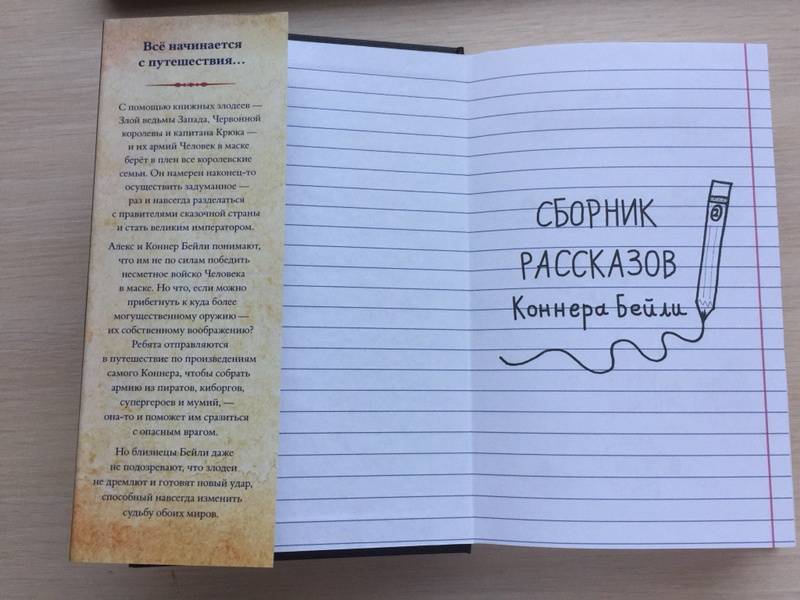 Всё начинается
с путешествия...
С помощью книжных злодеев —
Злой ведьмы Запада, Червонной
королевы и капитана Крюка —
и их армий Человек в маске
берёт в плен все королевские
семьи. Он намерен наконец-то
осуществить задуманное —
раз и навсегда разделаться
с правителями сказочной страны
и стать великим императором.
Алекс и Коннер Бейли понимают,
что им не по силам победить
несметное войско Человека
в маске. Но что, если можно
прибегнуть к куда более
могущественному оружию —
их собственному воображению?
Ребята отправляются
в путешествие по произведениям
самого Коннера, чтобы собрать
армию из пиратов, киборгов,
супергероев и мумий, —
она-то и поможет им сразиться
с опасным врагом.
Но близнецы Бейли даже
не подозревают, что злодеи
не дремлют и готовят новый удар,
способный навсегда изменить
судьбу обоих миров.
СБОРНИК
РАССКАЗОВ
Коннера Бейли
2